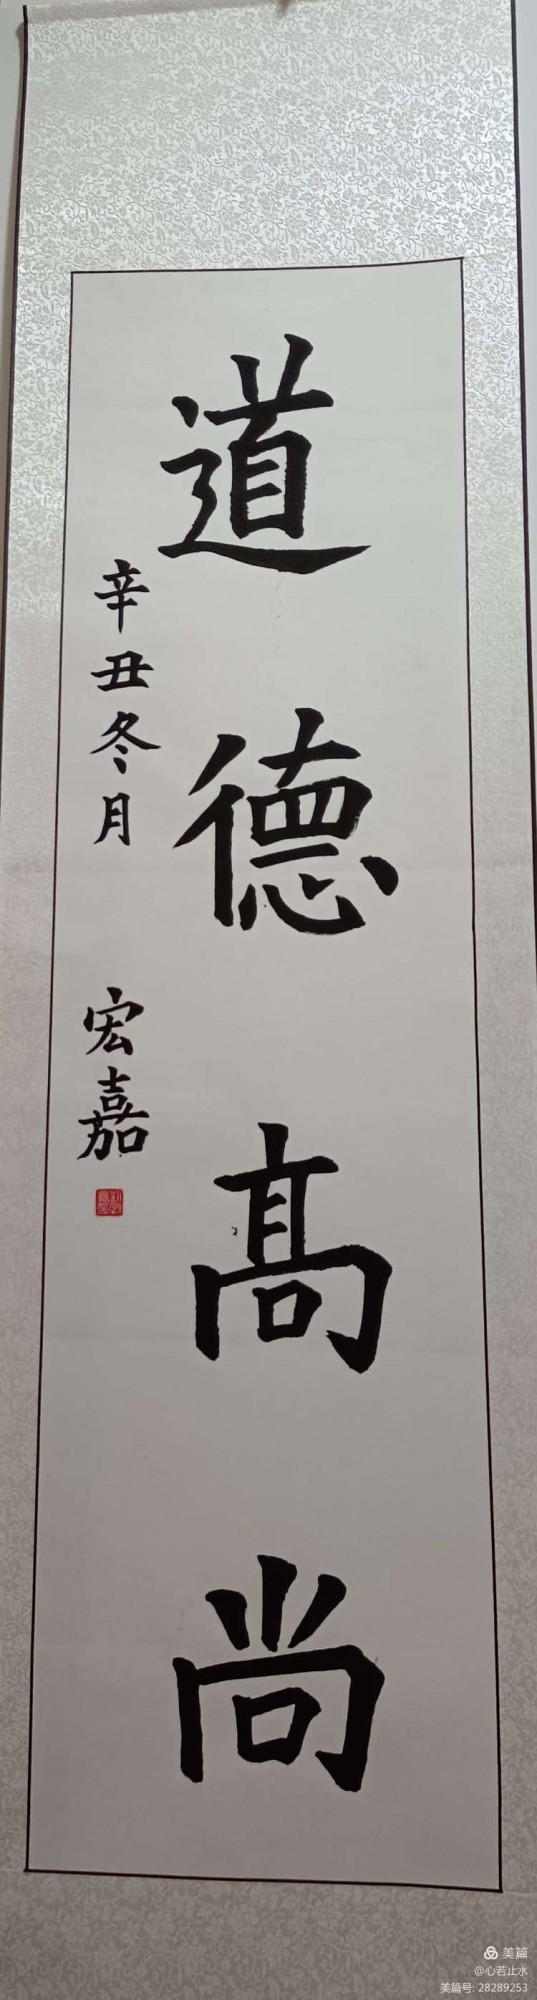 道德髙尚
辛丑冬月
宏嘉
美篇
@心若止水
美篇号: 28289253